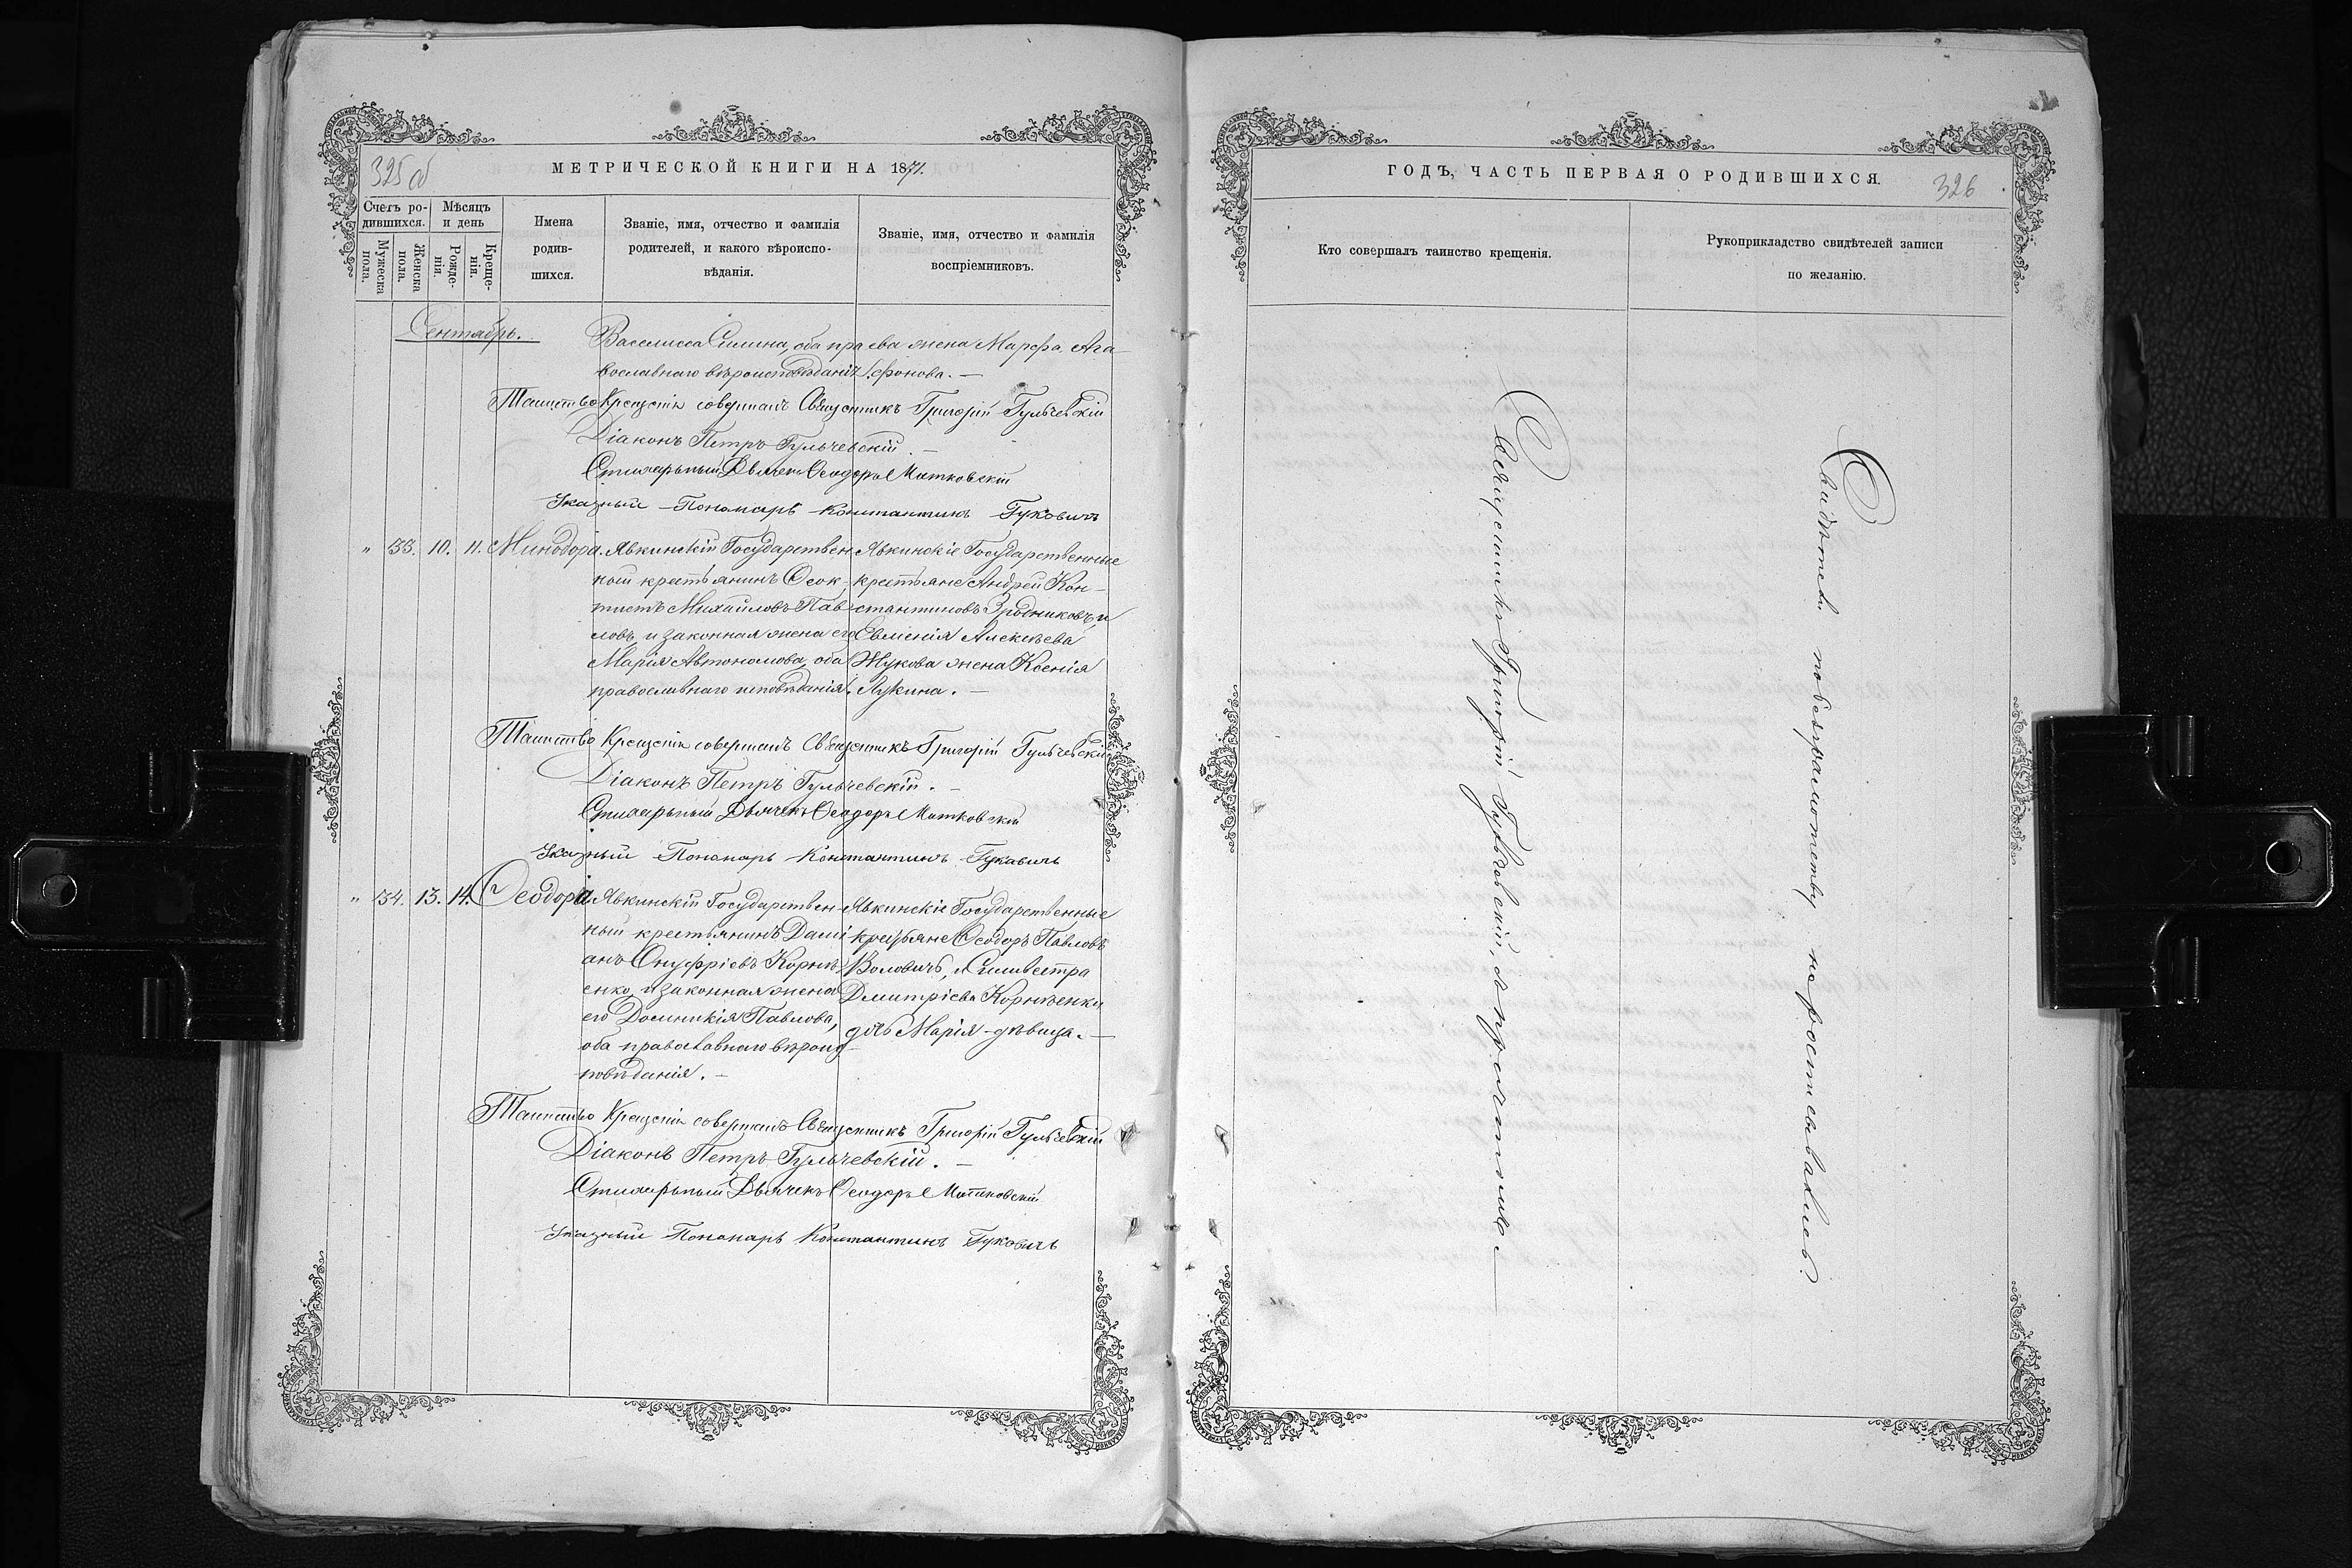 325 об
МЕТРИЧЕСКОЙ КНИГИ НА 1871.
Счетъ ро-
дившихся.
Мужеска пола.
Женска пола.
Мѣсяцъ
и день
Рожде-
нія.
Креще-
нія.
Имена
родив-
шихся.
Званіе, имя, отчество и фамилія
родителей, и какого вѣроиспо-
вѣданія.
Званіе, имя, отчество и фамилія
воспріемниковъ.
Сентябрь.
Василиса Силина, оба пра
вославнаго вѣроисповѣданія.
ева жена Марѳа Ага-
фонова. —
Таинство Крещенія совершалъ Священникъ Григорій Гульчевскій
Діаконъ Петръ Гульчевскій. —
Стихарьный Дьячекъ Ѳеодоръ Матковскій
Указный Пономарь Константинъ Гуковичъ
" 33. 10. 11. Минодора.
Явкинскій Государствен
ный крестьянинъ Ѳеок-
тистъ Михайловъ Пав-
ловъ, и законная жена его
Марія Автономова, оба
православнаго исповѣданія.
Явкинскіе Государственные
крестьяне Андрей Кон-
стантиновъ Зродниковъ, и
Евменія Алексѣева
Жукова жена Ксенія
Лукина. —
Таинство Крещенія совершалъ Священникъ Григорій Гульчевскій
Діаконъ Петръ Гульчевскій. —
Стихарьный Дьячекъ Ѳеодоръ Матковскій
Указный Пономарь Константинъ Гуковичъ
" 34. 13. 14. Ѳеодора
Явкинскій Государствен-
ный крестьянинъ Дамі
анъ Онуфріевъ Корнѣ-
енко, и законная жена
его Домникія Павлова,
оба православнаго вѣроис-
повѣданія. —
Явкинскіе Государственные
крестьяне Ѳеодоръ Павловъ
Воловичъ, и Сильвестра
Дмитріева Корнѣенки
дочь Марія - дѣвица. —
Таинство Крещенія совершалъ Священникъ Григорій Гульчевскій
Діаконъ Петръ Гульчевскій. —
Стихарьный Дьячекъ Ѳеодоръ Матковскій
Указный Пономарь Константинъ Гуковичъ
ГОДЪ, ЧАСТЬ ПЕРВАЯ О РОДИВШИХСЯ.
326
Кто совершалъ таинство крещенія.
Рукоприкладство свидѣтелей записи
по желанію.
Священникъ Григорій Гульчевскій, съ причтомъ. —
Свидѣтели по безграмотству не росписывались.